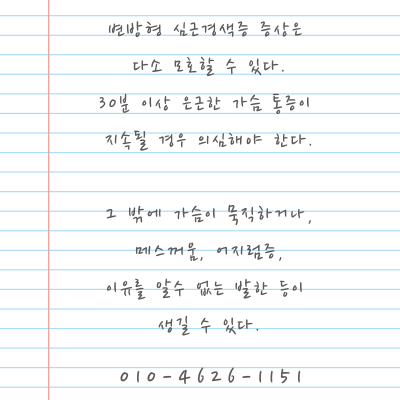 변방형 심근경색증 증상은
다소 모호할 수 있다.
30분 이상 은근한 가슴 통증이
지속될 경우 의심해야 한다.
그 밖에 가슴이 묵직하거나,
메스꺼움, 어지럼증,
이유를 알수 없는 발한 등이
생길 수 있다.
010-4626-1151